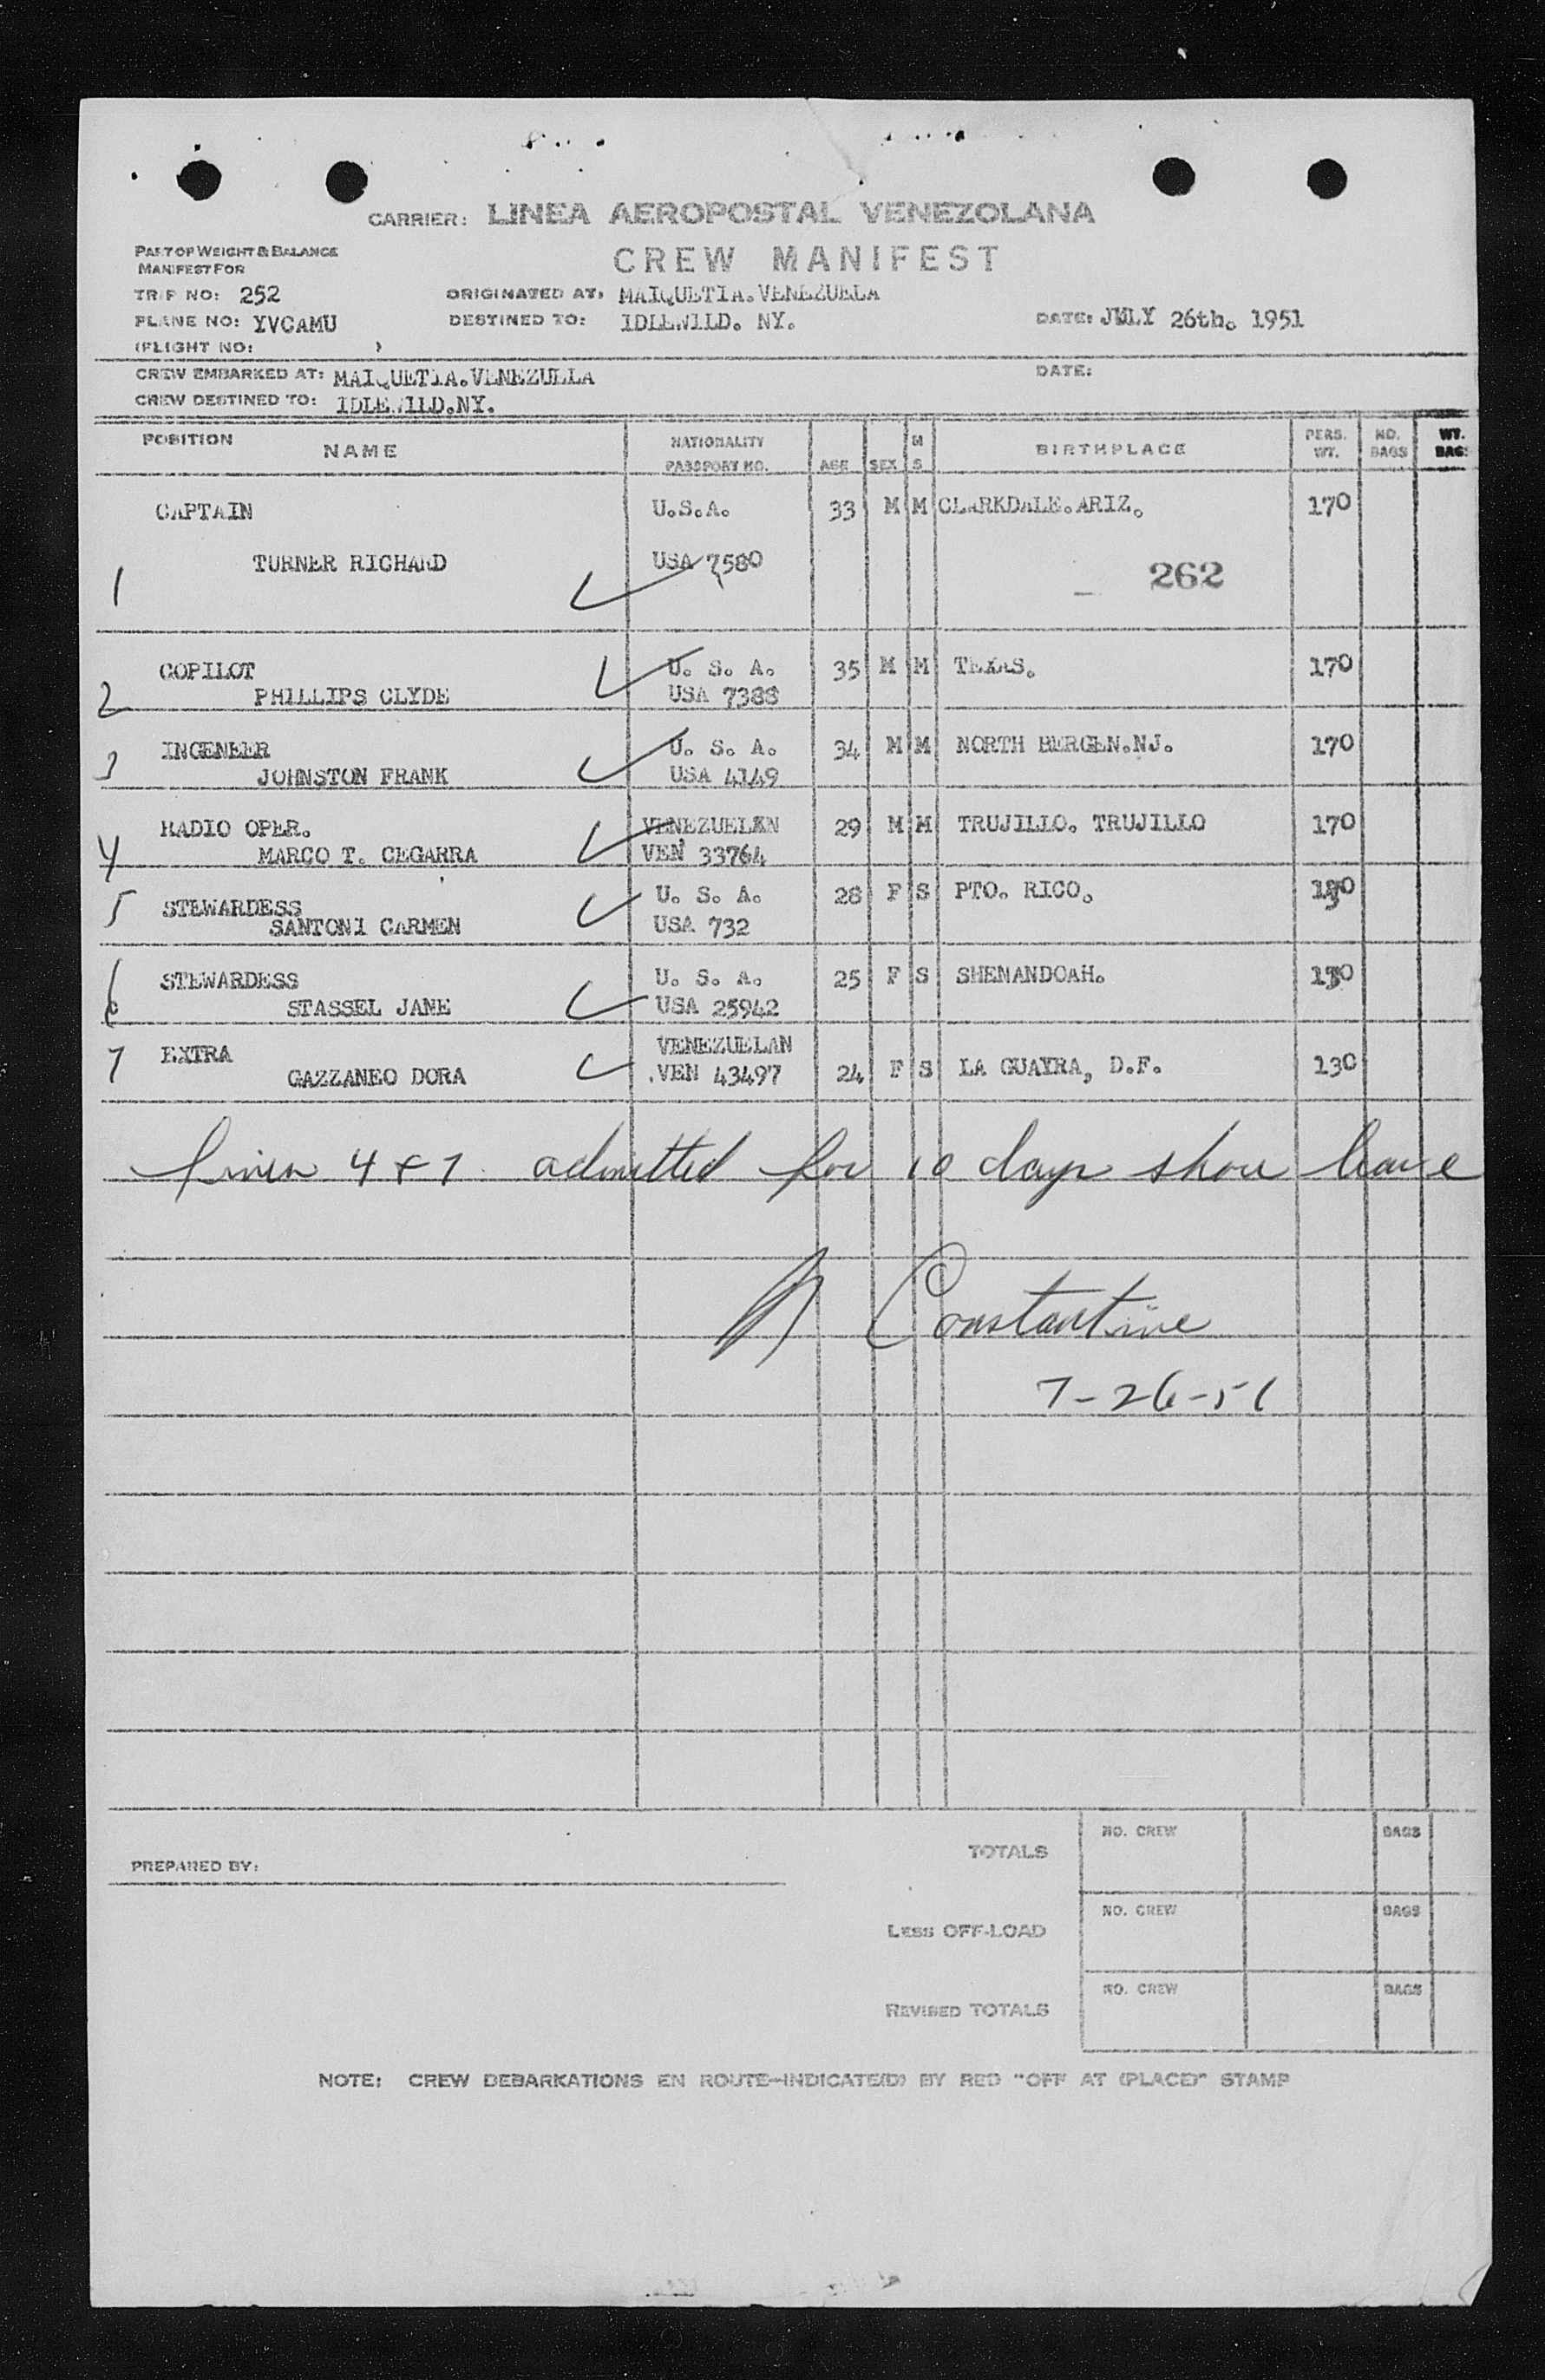 CARRIER: LINEA AEROPOSTAL VENEZOLANA
PART OF WEIGHT & BALANCE
MANIFEST FOR
CREW MANIFEST
TRIP NO: 252 ORIGINATED AT: MAIQUETIA.VENEZUELA
PLANE NO: YVCAMU DESTINED TO: IDLEWILD. NY. DATE: JULY 26th. 1951
(FLIGHT NO: )
CREW EMBARKED AT: MAIQUETIA.VENEZUELA DATE:
CREW DESTINED TO: IDLEWILD.NY.
POSITION NAME NATIONALITY PASSPORT NO. AGE SEX M S BIRTHPLACE PERS. WT. NO. BAGS WT. BAGS
CAPTAIN U.S.A. 33 M M CLARKDALE.ARIZ. 170
1 TURNER RICHARD USA 7580 262
COPILOT U. S. A. 35 M M TEXAS. 170
2 PHILLIPS CLYDE USA 7388
INGENEER U. S. A. 34 M M NORTH BERGEN.NJ. 170
3 JOHNSTON FRANK USA 4149
RADIO OPER. VENEZUELAN 29 M M TRUJILLO. TRUJILLO 170
4 MARCO T. CEGARRA VEN 33764
5 STEWARDESS U. S. A. 28 F S PTO. RICO.
SANTONI CARMEN USA 732
6 STEWARDESS U. S. A. 25 F S SHENANDOAH. 130
STASSEL JANE USA 25942
7 EXTRA VENEZUELAN
GAZZANEO DORA .VEN 43497 24 F S LA GUAYRA, D.F. 130
4 & 7 admitted for 10 days shore leave
Constantine
7-26-51
PREPARED BY:
TOTALS NO. CREW BAGS
LESS OFF-LOAD NO. CREW BAGS
REVISED TOTALS NO. CREW BAGS
NOTE: CREW DEBARKATIONS EN ROUTE-INDICATE(D) BY RED "OFF AT (PLACE)" STAMP